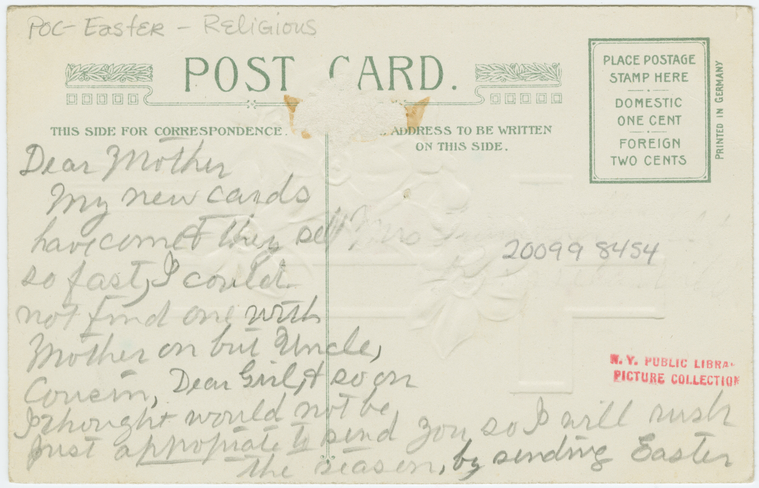 POC - Easter - Religious
POST CARD.
THIS SIDE FOR CORRESPONDENCE.
ADDRESS TO BE WRITTEN
ON THIS SIDE.
PLACE POSTAGE
STAMP HERE
DOMESTIC
ONE CENT
FOREIGN
TWO CENTS
PRINTED IN GERMANY
Dear Mother
My new cards
have come & they sell
so fast, I could
not find one with
Mother on but Uncle,
Cousin, Dear Girl, & so on
I thought would not be
just appropiate to send you so I will rush
the season, by sending Easter
Mrs
200998454
N. Y. PUBLIC LIBRA
PICTURE COLLECTION